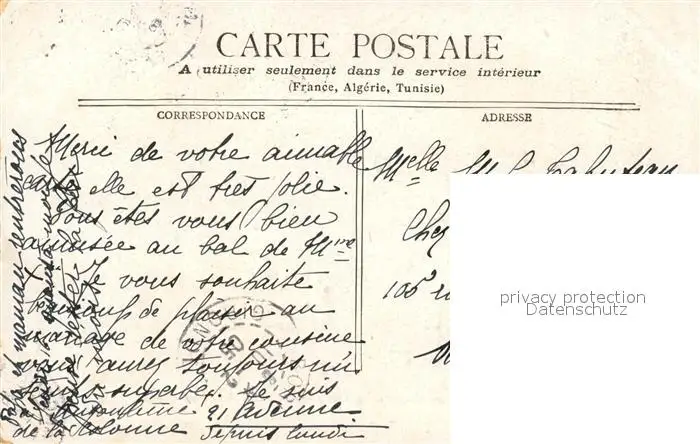 CARTE POSTALE
A utiliser seulement dans le service intérieur
(France, Algérie, Tunisie)
CORRESPONDANCE
ADRESSE
Merci de votre aimable
carte elle est très jolie.
Vous êtes vous bien
amusée au bal de Mme
Je vous souhaite
beaucoup de plaisir au
mariage de votre cousine
vous aurez toujours un
temps superbe. Je suis
à Angoulême 21 Avenue
de la Colonne depuis lundi
Papa et maman rentreront
Melle M. L.
Chez
105
privacy protection
Datenschutz